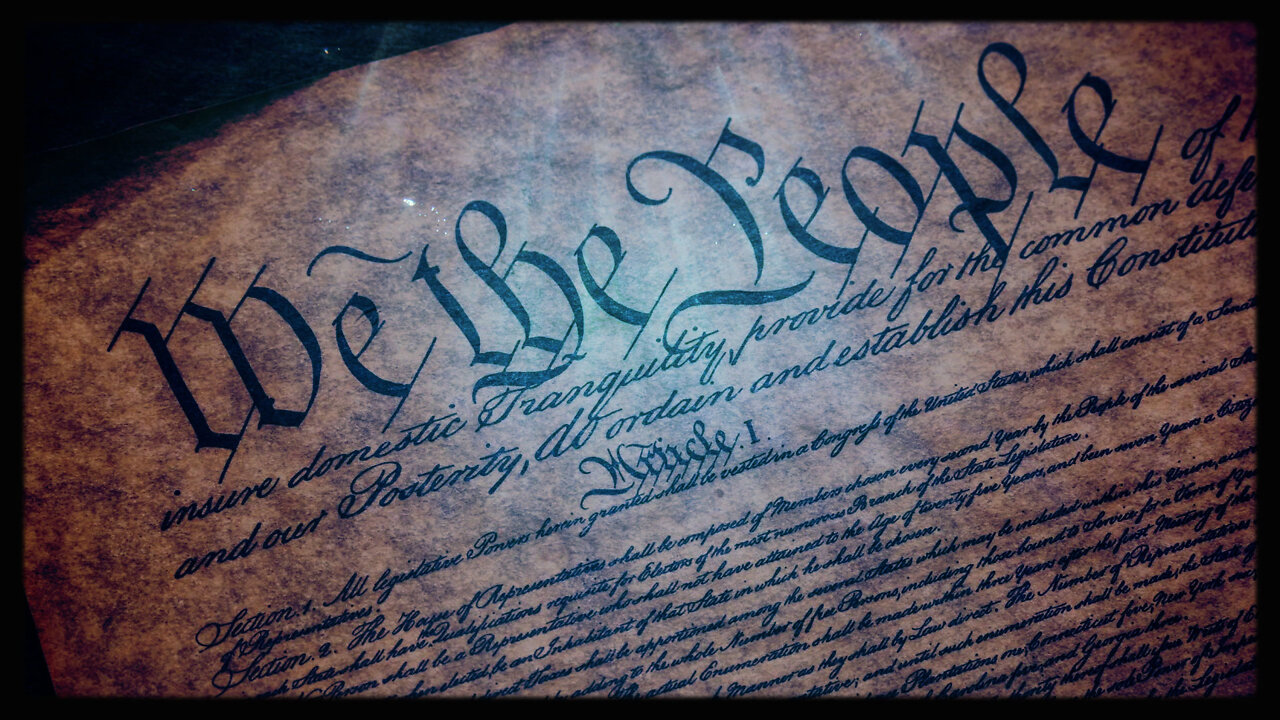 We the People of
insure domestic Tranquility, provide for the common
and our Posterity, do ordain and establish this
Article. I.
Section. 1. All legislative Powers herein granted shall be vested in a Congress of the United States, which shall consist of a
of Representatives.
Section. 2. The House of Representatives shall be composed of Members chosen every second Year by the People of the several
State shall have the Qualifications requisite for Electors of the most numerous Branch of the State Legislature.
Person shall be a Representative who shall not have attained to the Age of twenty five Years, and been seven Years a
when elected, be an Inhabitant of that State in which he shall be chosen.
Taxes shall be apportioned among the several States which may be included within this Union,
adding to the whole Number of free Persons, including those bound to Service for a Term of
actual Enumeration shall be made within three Years after the first Meeting of the
Manner as they shall by Law direct. The Number of Representatives
and until such enumeration shall be made, the State of
Plantations one, Connecticut five, New York
and Georgia three.